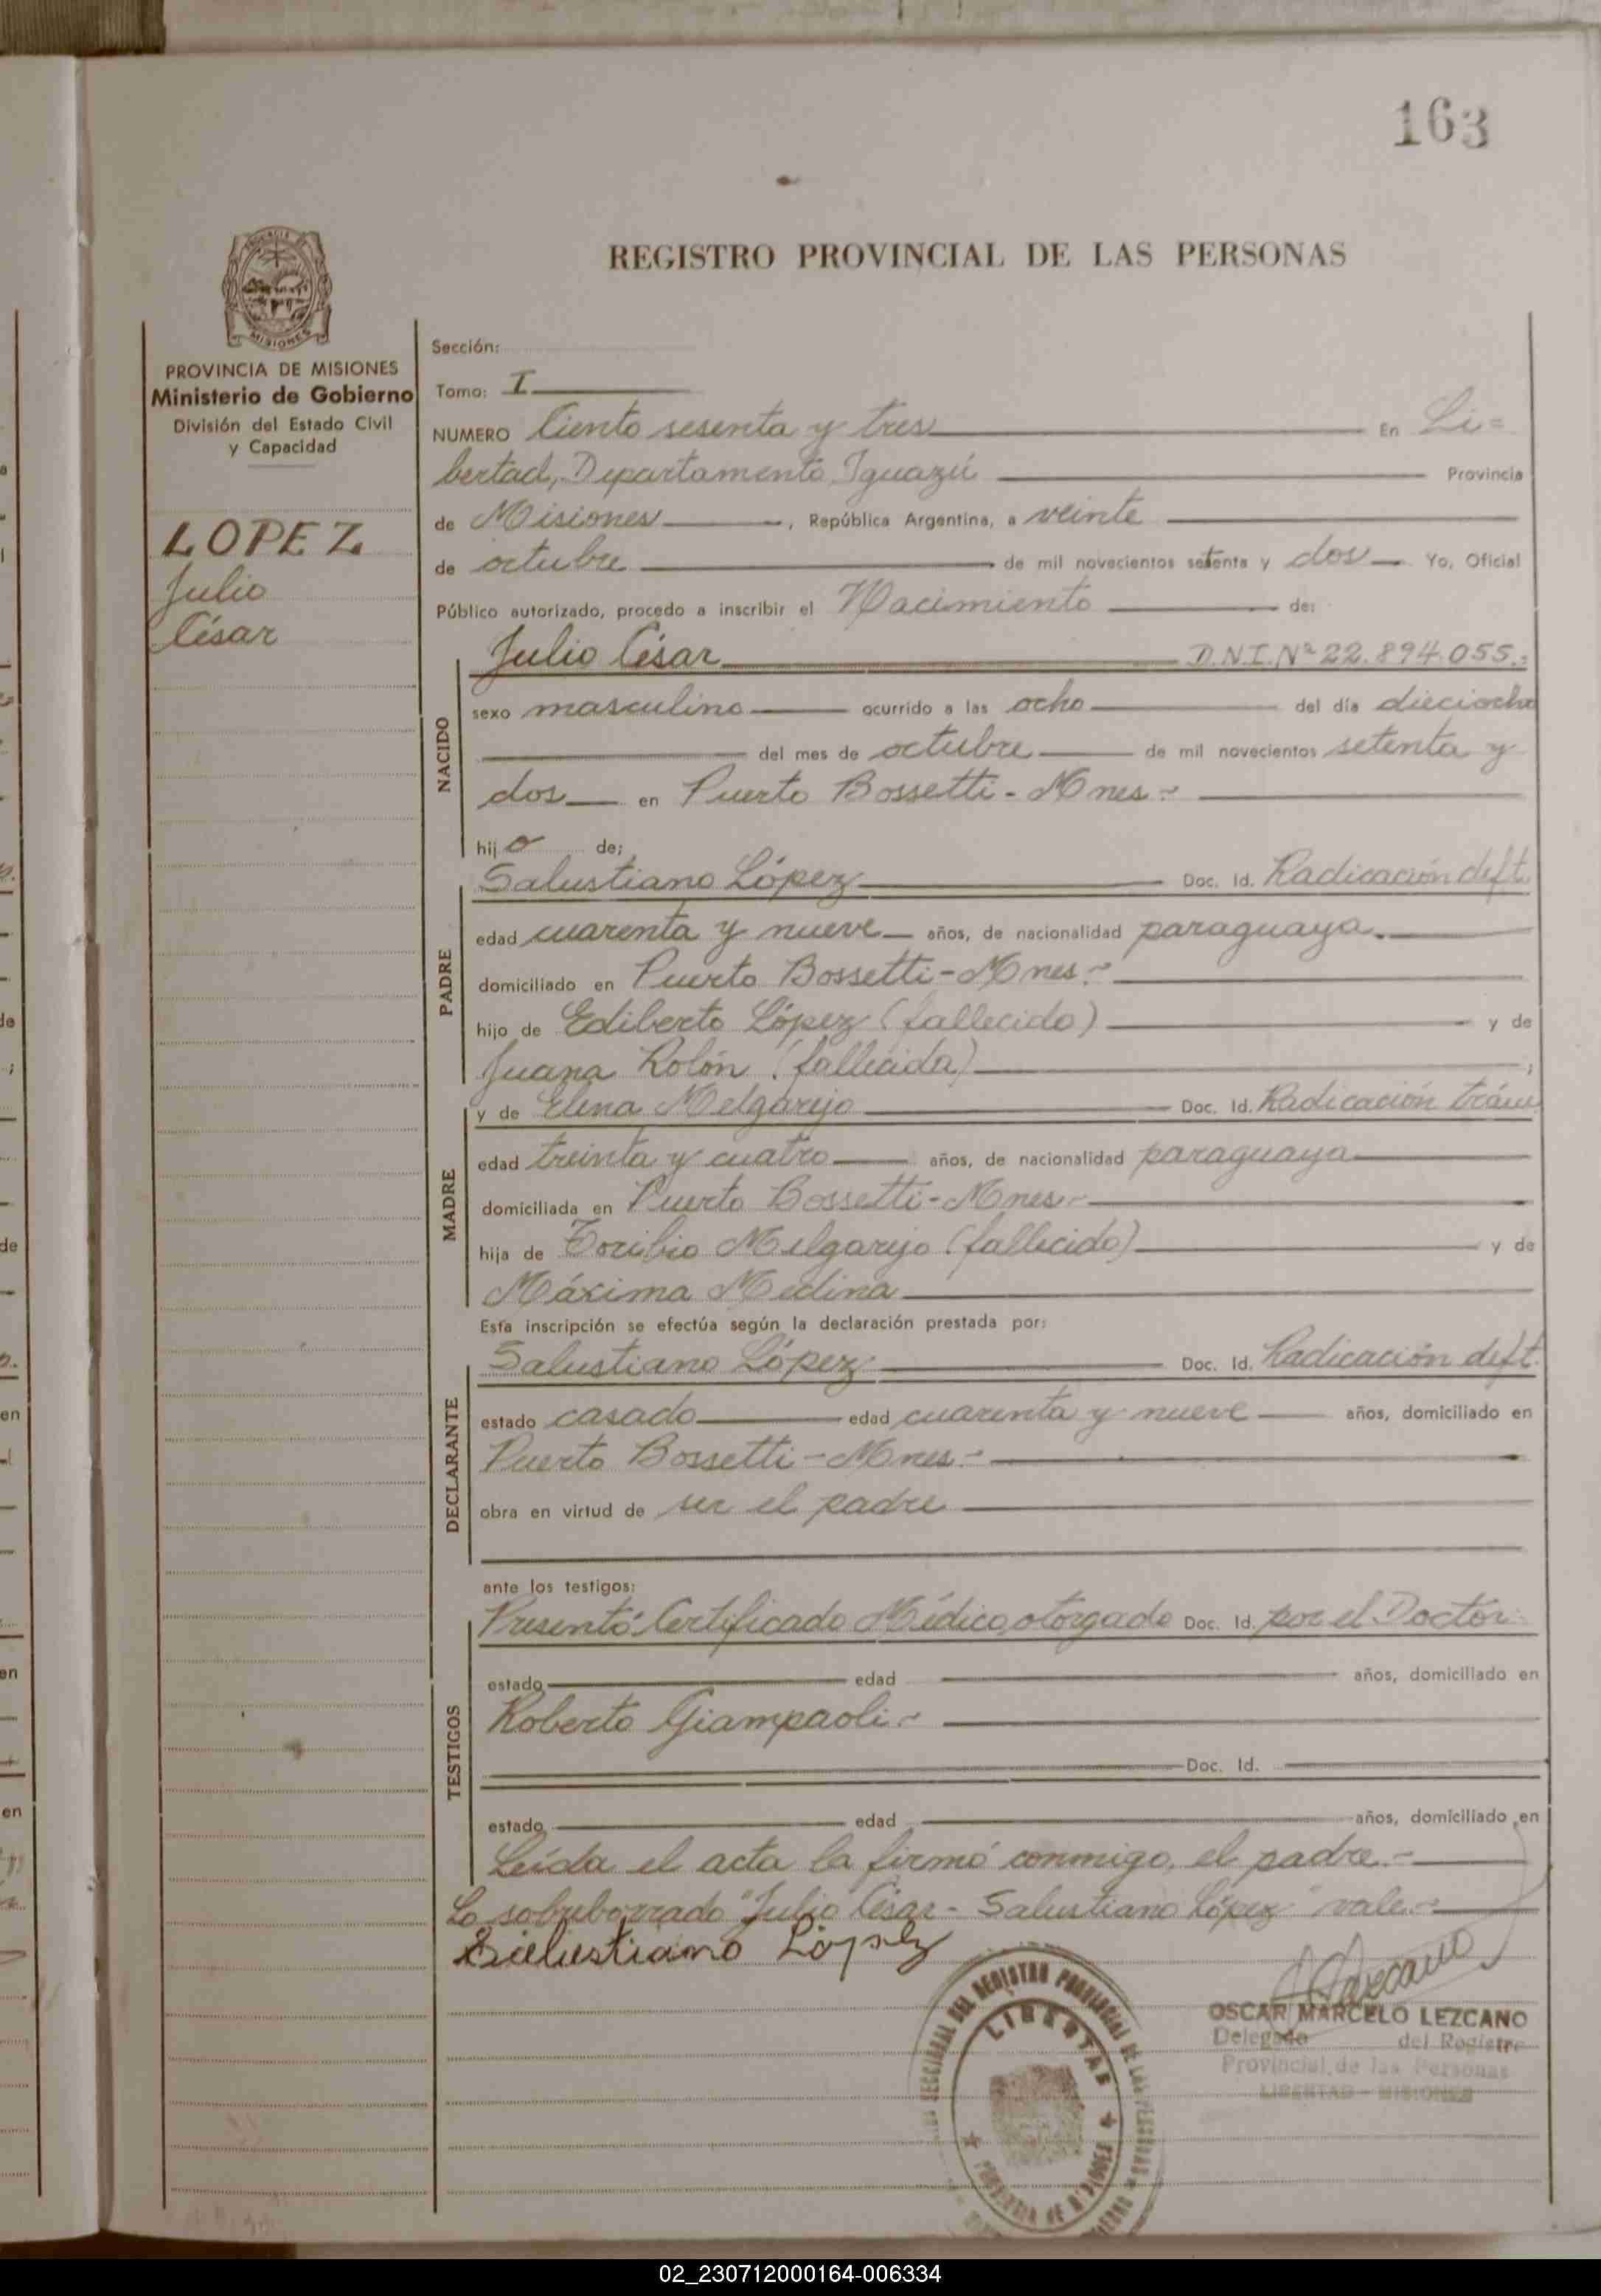 163
REGISTRO PROVINCIAL DE LAS PERSONAS
MISIONES
PROVINCIA DE MISIONES
Ministerio de Gobierno
División del Estado Civil
y Capacidad
LOPEZ
Julio
César
Sección:
Tomo: I
NUMERO Ciento sesenta y tres En Li=
bertad, Departamento Iguazú Provincia
de Misiones, República Argentina, a veinte
de octubre de mil novecientos setenta y dos Yo, Oficial
Público autorizado, procedo a inscribir el Nacimiento de:
NACIDO
Julio César D.N.I. Nº 22.894.055.=
sexo masculino ocurrido a las ocho del día dieciocho
del mes de octubre de mil novecientos setenta y
dos en Puerto Bossetti - Mnes.-
hijo de;
PADRE
Salustiano López Doc. Id. Radicación deft.
edad cuarenta y nueve años, de nacionalidad paraguaya.
domiciliado en Puerto Bossetti - Mnes.-
hijo de Ediberto López (fallecido) y de
Juana Rolón (fallecida) ;
MADRE
y de Elena Melgarejo Doc. Id. Radicación trám
edad treinta y cuatro años, de nacionalidad paraguaya
domiciliada en Puerto Bossetti - Mnes-
hija de Toribio Melgarejo (fallecido) y de
Máxima Medina
Esta inscripción se efectúa según la declaración prestada por:
DECLARANTE
Salustiano López Doc. Id. Radicación deft.
estado casado edad cuarenta y nueve años, domiciliado en
Puerto Bossetti - Mnes.-
obra en virtud de ser el padre
ante los testigos:
TESTIGOS
Presentó Certificado Médico, otorgado Doc. Id. por el Doctor
estado edad años, domiciliado en
Roberto Giampaoli.-
Doc. Id.
estado edad años, domiciliado en
Leída el acta la firmó conmigo, el padre.-
Lo sobreborrado "Julio César - Salustiano López" vale.-
Salustiano López
Lezcano
OSCAR MARCELO LEZCANO
Delegado del Registro
Provincial de las Personas
LIBERTAD - MISIONES
SECCIONAL DEL REGISTRO PROVINCIAL DE LAS PERSONAS
LIBERTAD
PROVINCIA DE MISIONES
02_230712000164-006334